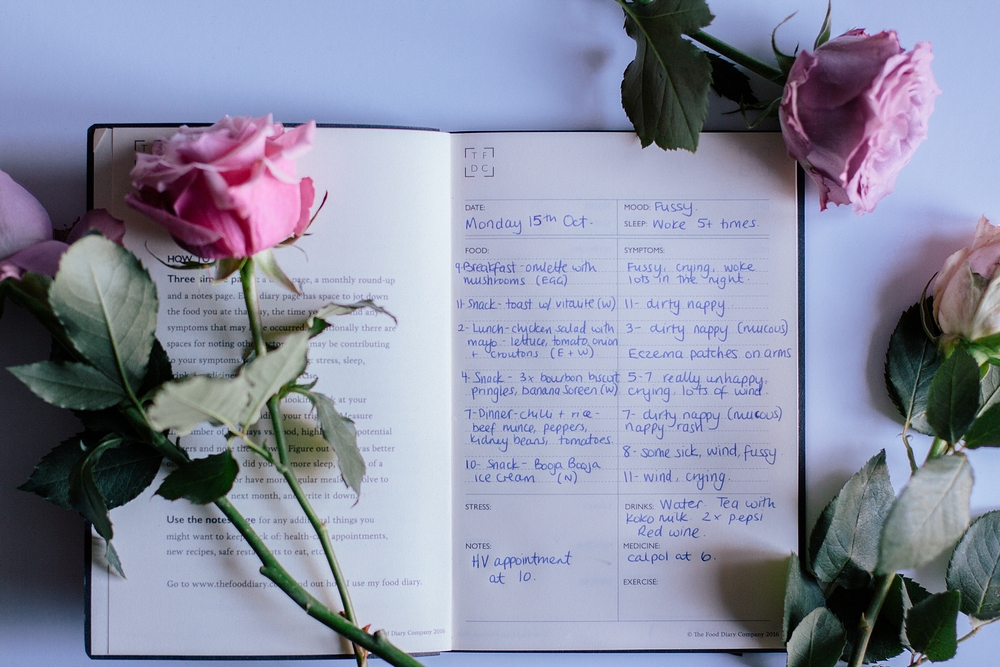 HOW TO
Three sim page, a monthly round-up
and a notes page. E diary page has space to jot down
the food you ate the day, the time y and any
symptoms that may occurred ionally there are
spaces for noting othe may be contributing
to your symptoms stress, sleep,
looki at your
your trig easure
potential
was better
more sleep, of a
have more regular olve to
next month, and write it down.
Use the notes page for any additional things you
might want to keep of: health-c appointments,
new recipes, safe rest ts to eat, etc.
Go to www.thefooddiary.c nd out how I use my food diary.
Food Diary Company 2016
TF
DC
DATE:
Monday 15th Oct.
MOOD: Fussy.
SLEEP: Woke 5+ times.
FOOD:
9 Breakfast - omlette with
mushrooms (EGG)
11- Snack - toast w/ vitalite (W)
2- Lunch - chicken salad with
mayo - lettuce, tomato, onion
+ croutons (E + W)
4. Snack - 3x bourbon biscuit
pringles, banana soreen (W)
7- Dinner - chilli + rice -
beef mince, peppers,
kidney beans, tomatoes.
10- Snack - Booja Booja
ice cream (N)
SYMPTOMS:
Fussy, crying, woke
lots in the night.
11- dirty nappy.
3- dirty nappy (mucous)
Eczema patches on arms
5-7 really unhappy.
crying. lots of wind.
7- dirty nappy (mucous)
nappy rash
8- some sick, wind, fussy
11- wind, crying.
STRESS:
NOTES:
HV appointment
at 10.
DRINKS: Water. Tea with
Koko milk 2x pepsi
Red wine.
MEDICINE:
calpol at 6.
EXERCISE:
© The Food Diary Company 2016